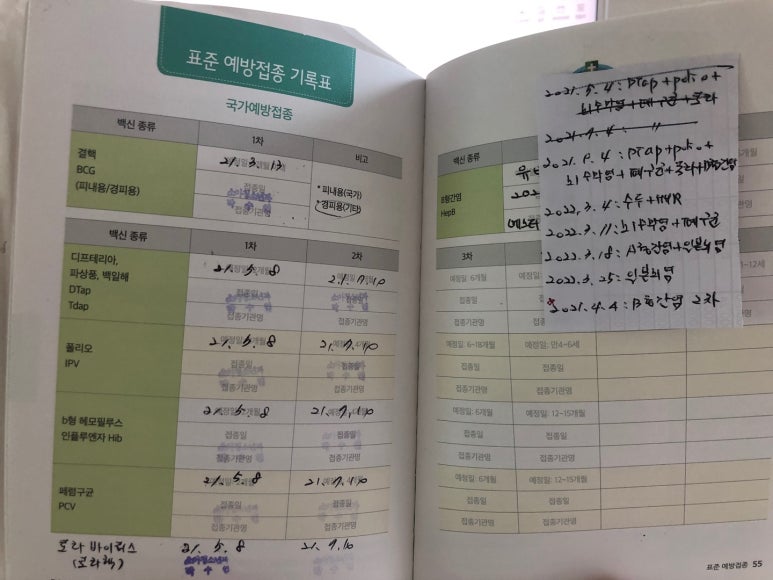 표준 예방접종 기록표
국가예방접종
백신 종류
1차
비고
결핵
BCG
(피내용/경피용)
21. 3. 13
접종일
접종기관명
• 피내용(국가)
• 경피용(기타)
백신 종류
1차
2차
디프테리아,
파상풍, 백일해
DTap
Tdap
21. 5. 8
21. 7. 10
접종일
접종일
접종기관명
접종기관명
폴리오
IPV
21. 5. 8
21. 7. 10
접종일
접종일
접종기관명
접종기관명
b형 헤모필루스
인플루엔자 Hib
21. 5. 8
21. 7. 10
접종일
접종일
접종기관명
접종기관명
폐렴구균
PCV
21. 5. 8
21. 7. 10
접종일
접종일
접종기관명
접종기관명
로타 바이러스
21. 5. 8
21. 7. 10
백신 종류
B형간염
HepB
2021. 5. 4 : DTap + polio +
뇌수막염 + 폐구균 + 로타
2021. 7. 4 : 〃
: DTap + polio +
뇌수막염 + 폐구균 + 로타 + B형간염
2022. 3. 4 : 수두 + MMR
2022. 3. 11 : 뇌수막염 + 폐구균
2022. 3. 18 : A형간염 + 일본뇌염
2022. 3. 25 : 일본뇌염
2021. 4. 4 : B형간염 2차
3차
예정일: 6개월
접종일
접종기관명
예정일: 6~18개월
예정일: 만4~6세
접종일
접종일
접종기관명
접종기관명
예정일: 6개월
예정일: 12~15개월
접종일
접종일
접종기관명
접종기관명
예정일: 6개월
예정일: 12~15개월
접종일
접종일
접종기관명
접종기관명
표준 예방접종 55